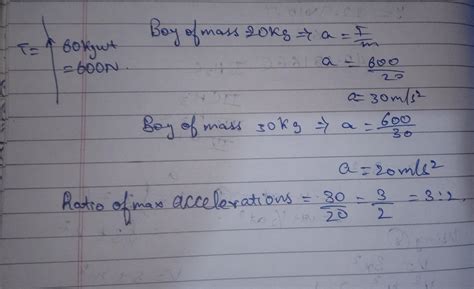 T= 60kgwt
= 600N.
Boy of mass 20kg ⇒ a = T/m
a = 600/20
a = 30m/s²
Boy of mass 30kg ⇒ a = 600/30
a = 20m/s²
Ratio of max accelerations = 30/20 = 3/2 = 3:2.